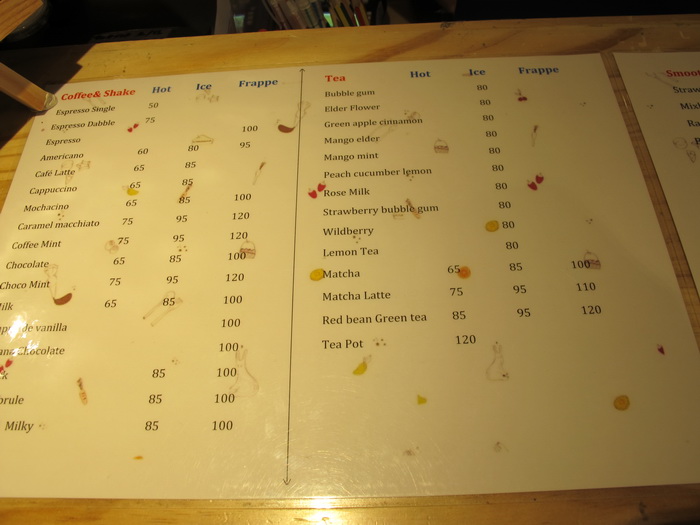 Coffee& Shake Hot Ice Frappe
Espresso Single 50
Espresso Dabble 75
Espresso 100
Americano 60 80 95
Café Latte 65 85
Cappuccino 65 85
Mochacino 65 85 100
Caramel macchiato 75 95 120
Coffee Mint 75 95 120
Chocolate 65 85 100
Choco Mint 75 95 120
65 85 100
vanilla 100
Chocolate 100
85 100
85 100
Milky 85 100
Tea Hot Ice Frappe
Bubble gum 80
Elder Flower 80
Green apple cinnamon 80
Mango elder 80
Mango mint 80
Peach cucumber lemon 80
Rose Milk 80
Strawberry bubble gum 80
Wildberry 80
Lemon Tea 80
Matcha 65 85 100
Matcha Latte 75 95 110
Red bean Green tea 85 95 120
Tea Pot 120
Smoot
Straw